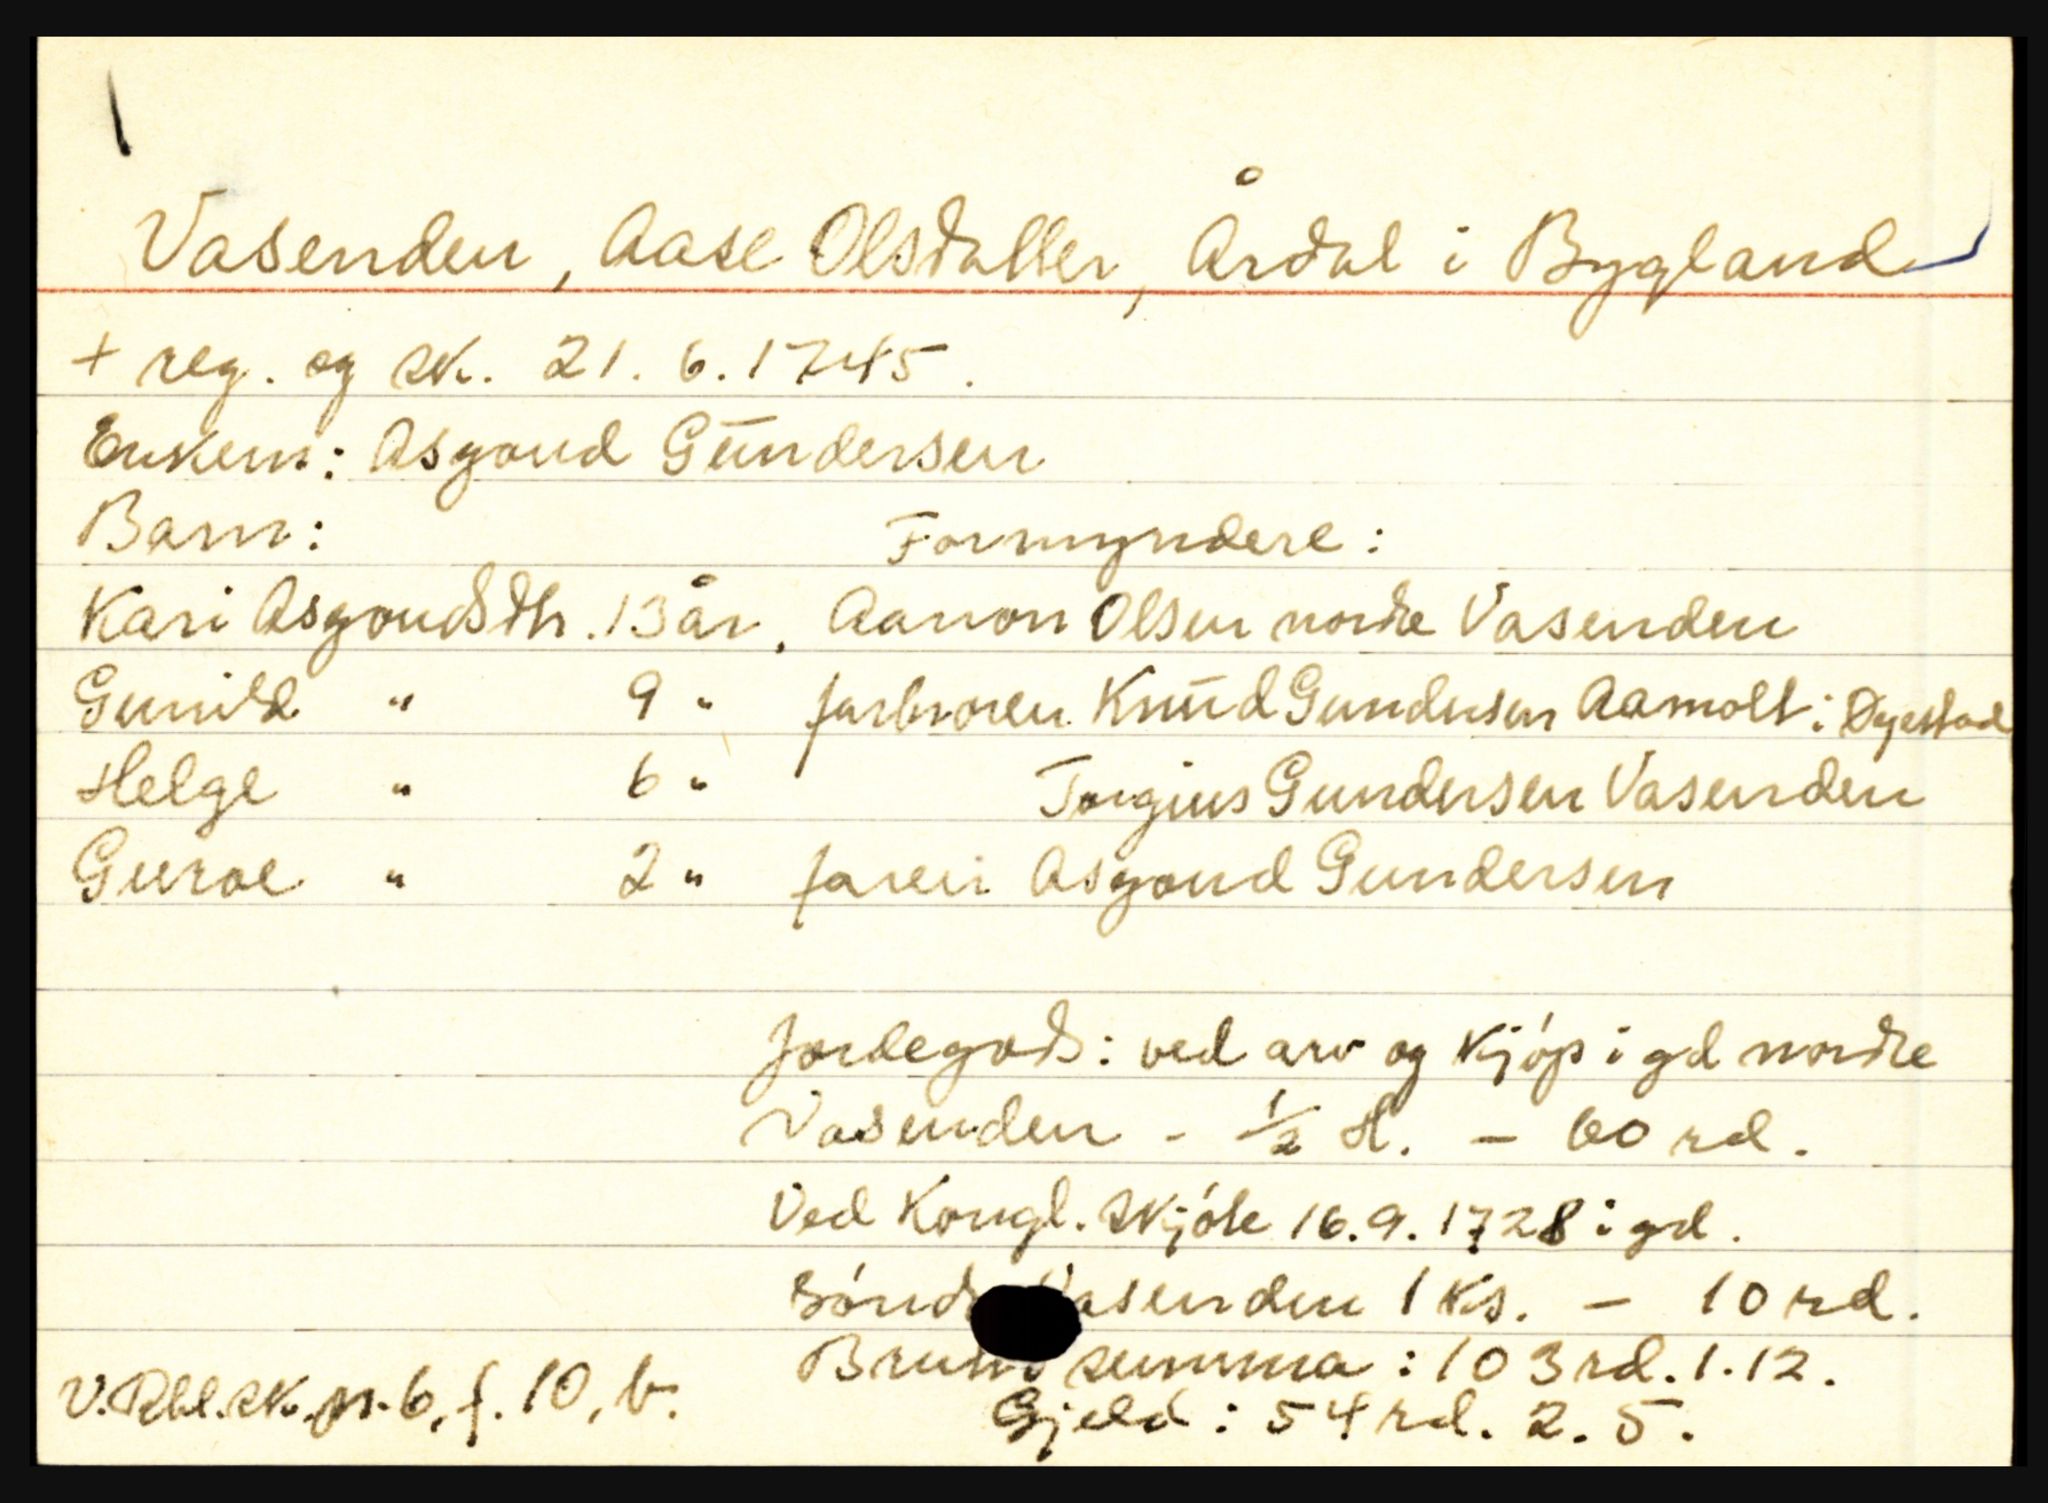 Vasenden, Aase Olsdatter, Årdal i Bygland
+ reg. og sk. 21. 6. 1745.
Enkem: Asgoud Gundersen
Barn: Formyndere:
Kari Asgoudsdtr. 13 år, Aanon Olsen nordre Vasenden
Gunild " 9 " farbroren Knud Gundersen Aamolt i Dyestad
Helge " 6 " Torgius Gundersen Vasenden
Guroe " 2 " faren Asgoud Gundersen
Jordegods: ved arv og kjøp i gd nordre
Vasenden - 1/2 H. - 60 rd.
Ved Kongl. skjøte 16.9.1728 i gd.
Søndre Vasenden 1 Ks. - 10 rd.
Brutto summa: 103 rd. 1. 12.
V. Rbl. sk. pr. 6, f. 10, b. Gjeld: 54 rd. 2. 5.